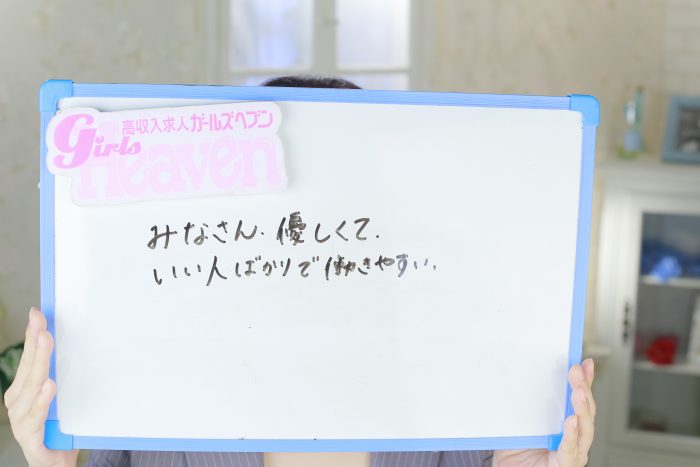 高収入求人ガールズヘブン
Girls
Heaven
みなさん、優しくて、
いい人ばかりで働きやすい。